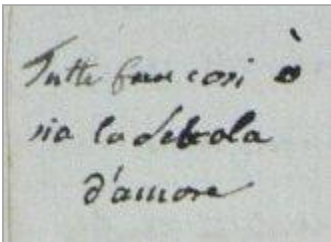 Tutte fann cosi ò
sia la Schola
d'amore